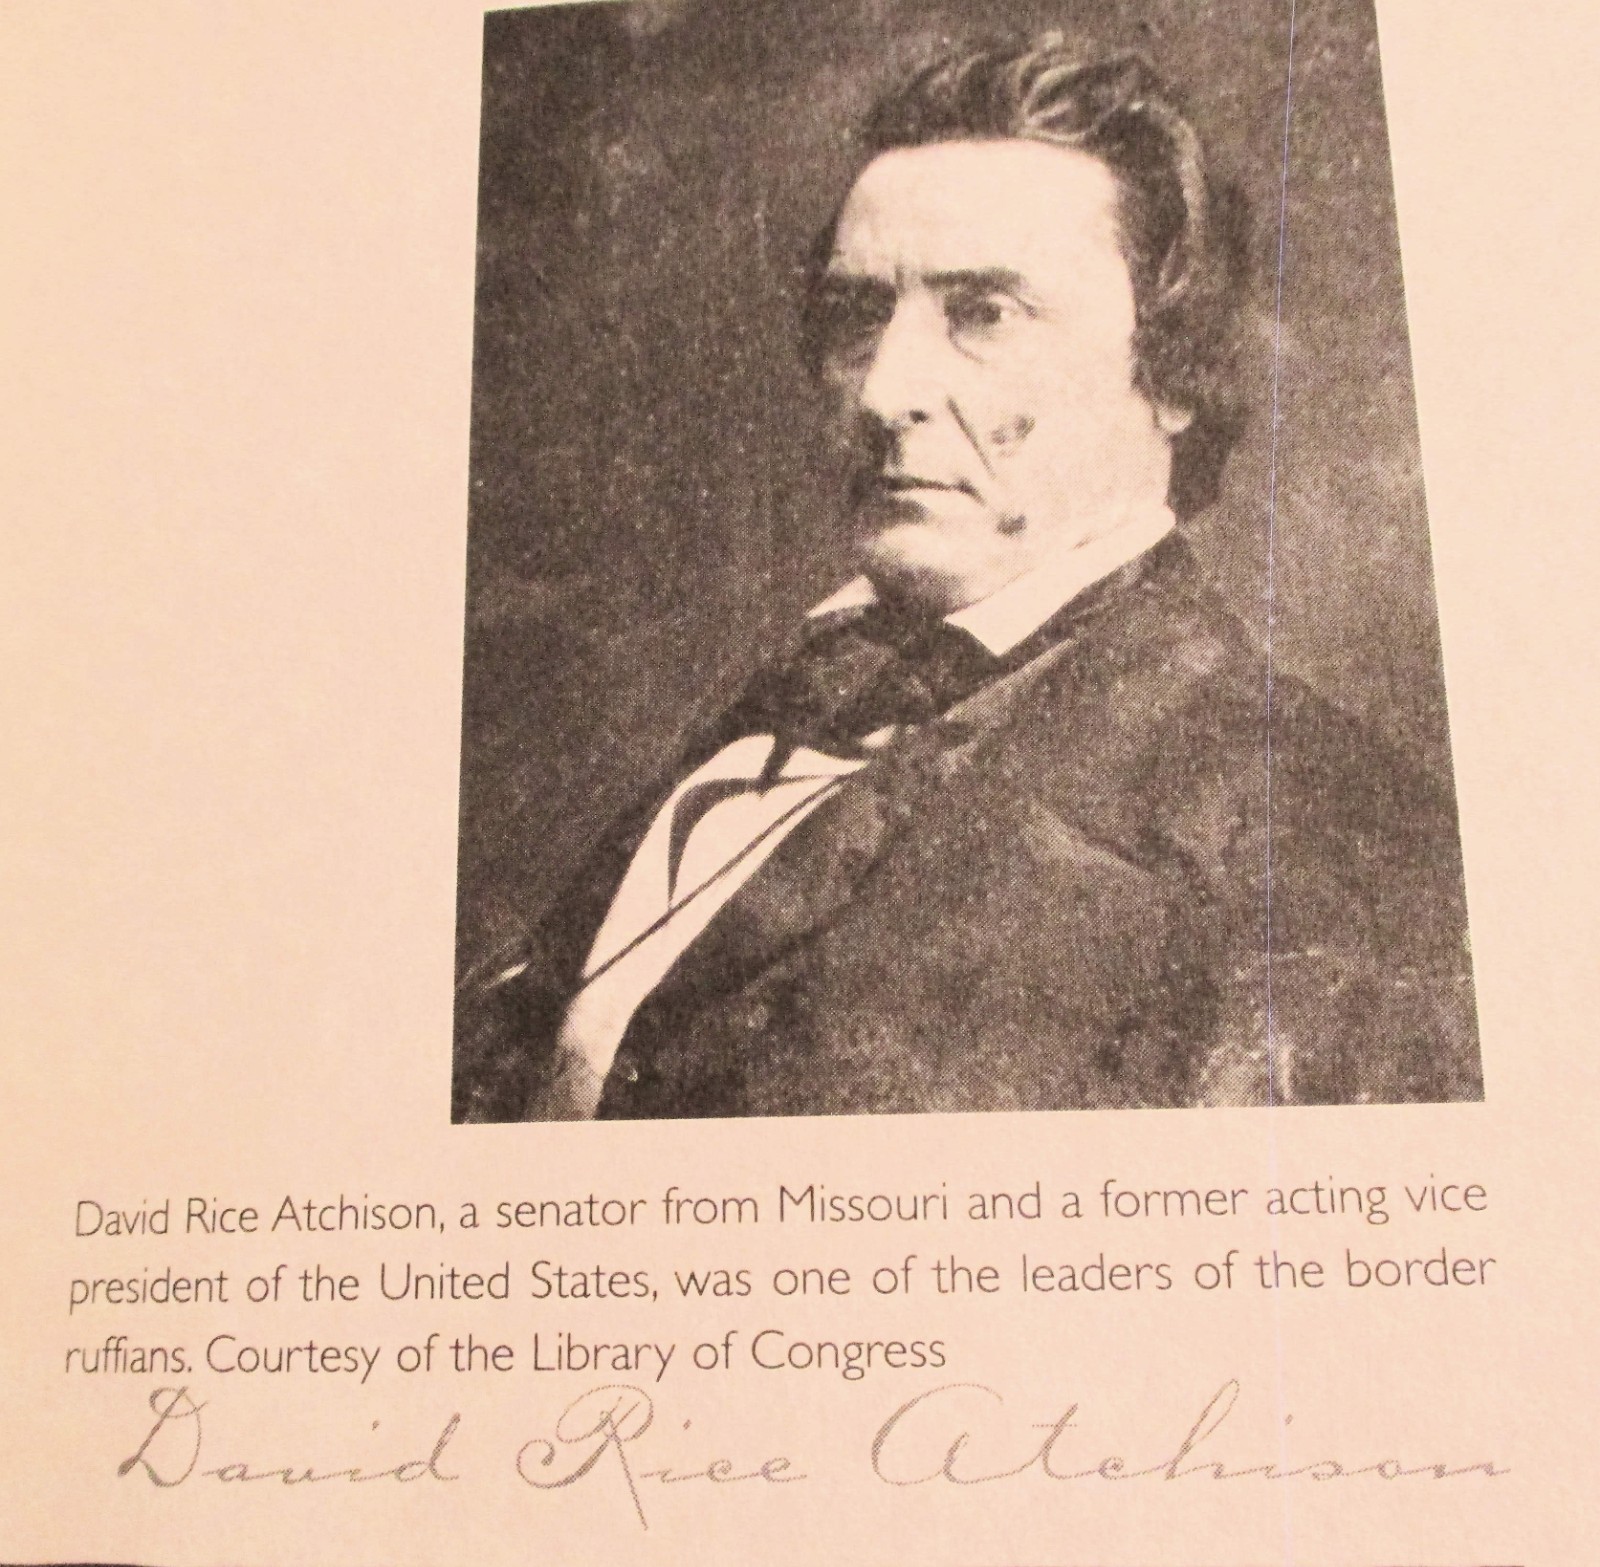 David Rice Atchison, a senator from Missouri and a former acting vice
president of the United States, was one of the leaders of the border
ruffians. Courtesy of the Library of Congress
David Rice Atchison